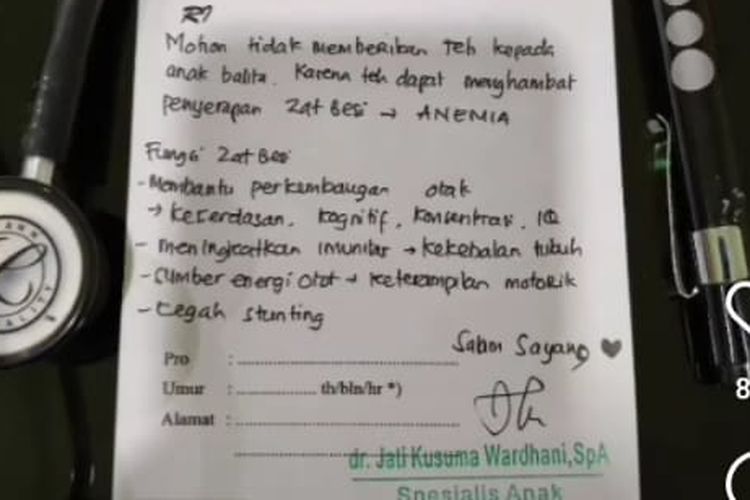 R/
Mohon tidak memberikan Teh kepada
anak balita. Karena teh dapat menghambat
penyerapan Zat Besi → ANEMIA
Fungsi Zat Besi
- Membantu perkembangan otak
→ kecerdasan, kognitif, konsentrasi, IQ
- meningkatkan imunitas → kekebalan tubuh
- sumber energi otot → keterampilan motorik
- cegah stunting
Salam Sayang ♥
Pro : ..........
Umur : .......... th/bln/hr *)
Alamat : ..........
dr. Jati Kusuma Wardhani,SpA
Spesialis Anak
8